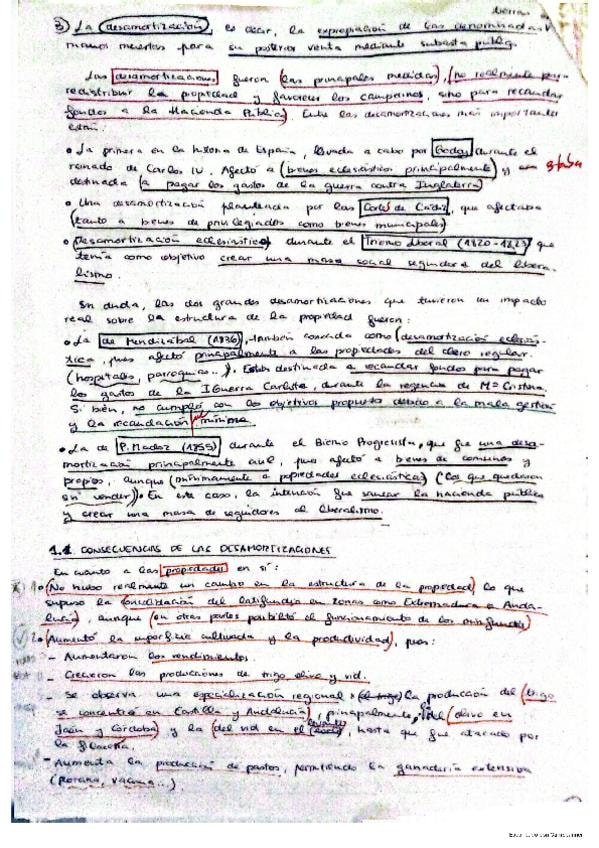 tierras
3) La desamortización, es decir, la expropiación de las denominadas
manos muertas para su posterior venta mediante subasta públ.
Las desamortizaciones fueron (las principales medidas), (no realmente para
redistribuir la propiedad y favorecer los campesinos, sino para recaudar
fondos a la Hacienda Pública). Entre las desamortizaciones más importantes
están:
• La primera en la historia de España, llevada a cabo por Godoy durante el
reinado de Carlos IV. Afectó a (bienes eclesiásticos principalmente) y estaba
destinada (a pagar los gastos de la guerra contra Inglaterra)
• Una desamortización planteada por las Cortes de Cádiz, que afectaba
(tanto a bienes de privilegiados como bienes municipales)
• (Desamortización eclesiástica) durante el Trienio liberal (1820-1823) que
tenía como objetivo crear una masa social seguidora del libera-
lismo.
Sin duda, las dos grandes desamortizaciones que tuvieron un impacto
real sobre la estructura de la propiedad fueron:
• La de Mendizábal (1836), también conocida como (desamortización eclesiás-
tica, pues afectó principalmente a las propiedades del clero regular.
(hospitales, parroquias...). Estaba destinada a recaudar fondos para pagar
los gastos de la I Guerra Carlista, durante la regencia de Mª Cristina.
Si bien, no cumplió con los objetivos propuestos debido a la mala gestión
y la recaudación fue mínima.
• La de P. Madoz (1855) durante el Bienio Progresista, que fue una desa-
mortización principalmente civil, pues afectó a bienes de comunes y
propios, aunque (mínimamente a propiedades eclesiásticas) (Los que quedaron
sin vender)). En este caso, la intención fue sanear la hacienda pública
y crear una masa de seguidores al liberalismo.
1.1 CONSECUENCIAS DE LAS DESAMORTIZACIONES
En cuanto a las propiedades en sí:
1o (No hubo realmente un cambio en la estructura de la propiedad) lo que
supuso la consolidación del latifundio en zonas como Extremadura o Anda-
lucía), aunque (en otras partes posibilitó el funcionamiento de los minifundios)
2o (Aumentó la superficie cultivada y la productividad), pues:
- Aumentaron los rendimientos.
- Crecieron las producciones de trigo, olivo y vid.
- Se observa una especialización regional: (el trigo) la producción del (trigo
se concentró en Castilla y Andalucía), principalmente, la del (olivo en
Jaén y Córdoba) y la (del vid en el levante), hasta que fue atacado por
la filoxera.
- Aumenta la producción de pastos, permitiendo la ganadería extensiva
(porcino, vacuno...).